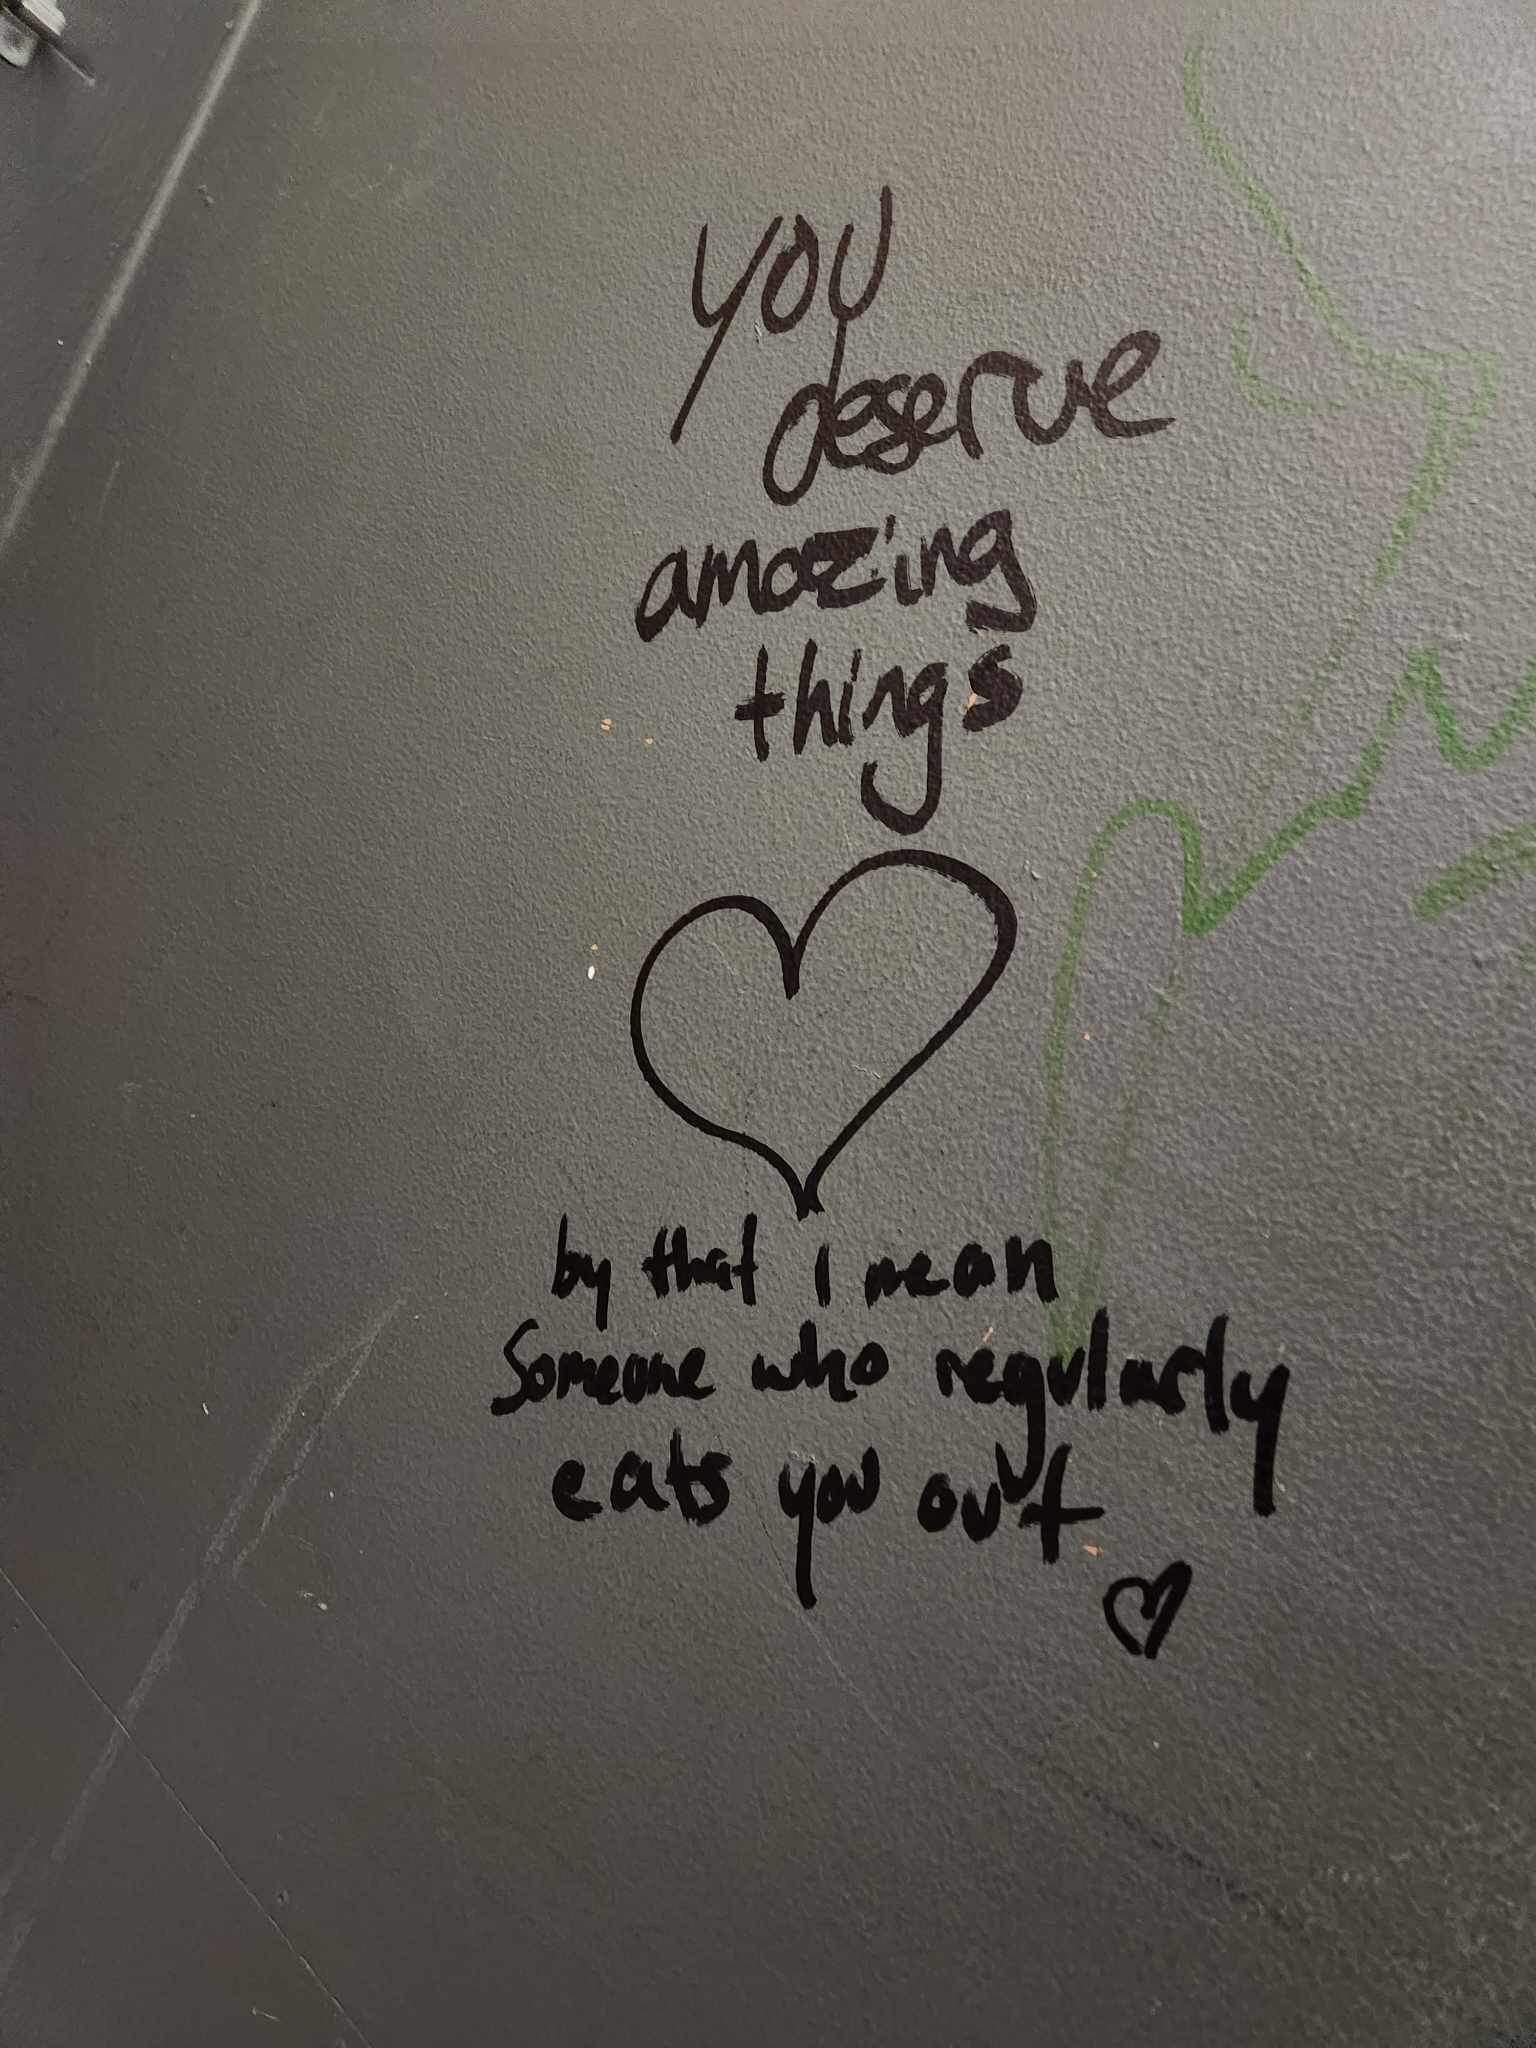 you
deserve
amazing
things
by that i mean
Someone who regularly
eats you out